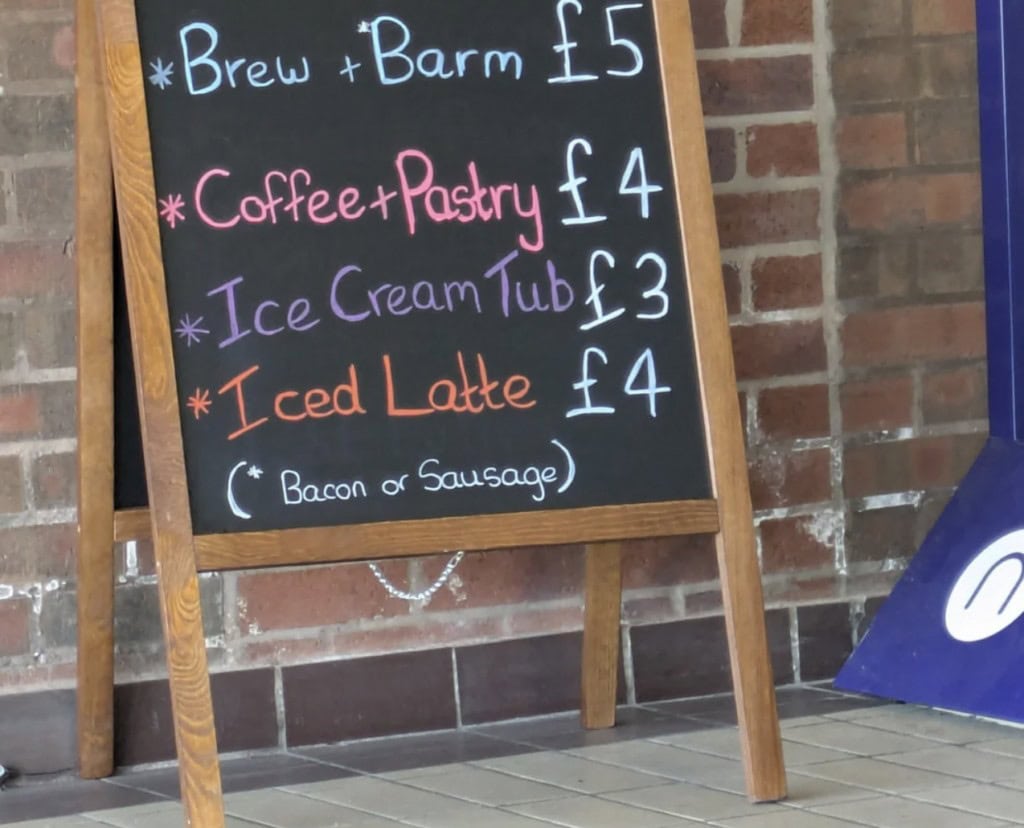 *Brew + *Barm £5
*Coffee + Pastry £4
*Ice Cream Tub £3
*Iced Latte £4
(* Bacon or Sausage)
n